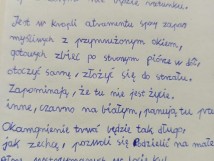 będzie warunku.
Jest w kropli atramentu spory zapas
myśliwych z przymrużonym okiem,
gotowych zbiec po stromym piórze w dół,
otoczyć sarnę, złożyć się do strzału.
Zapominają, że tu nie jest życie.
Inne, czarno na białym, panują tu prawa.
Okamgnienie trwać będzie tak długo,
jak zechcę, pozwoli się podzielić na małe